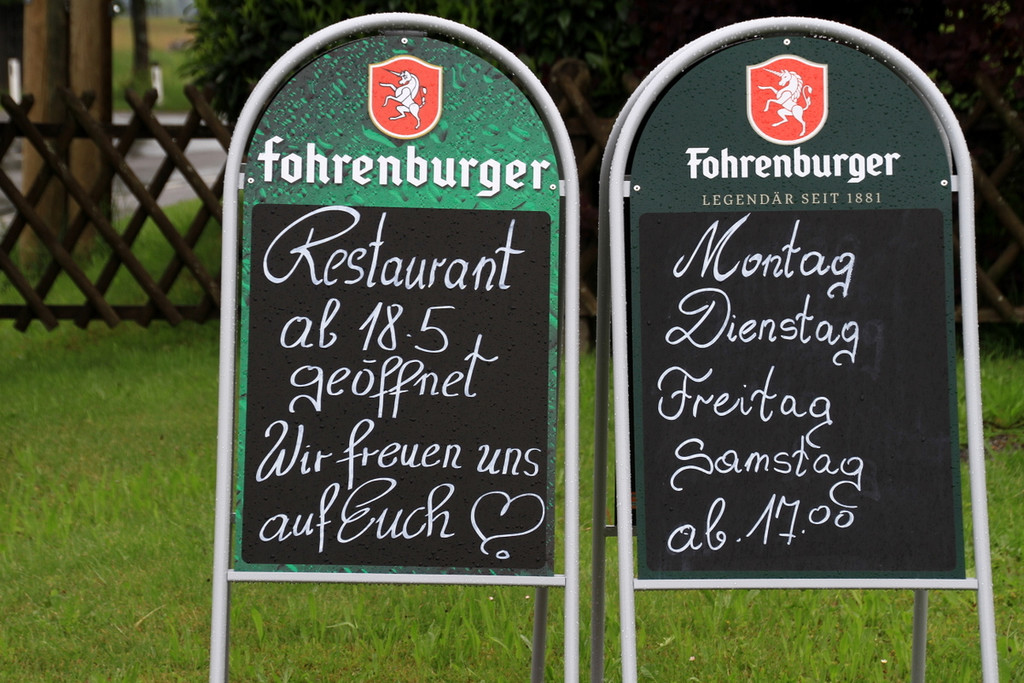 fohrenburger
Restaurant
ab 18.5
geöffnet
Wir freuen uns
auf Euch
Fohrenburger
LEGENDÄR SEIT 1881
Montag
Dienstag
Freitag
Samstag
ab. 17.00